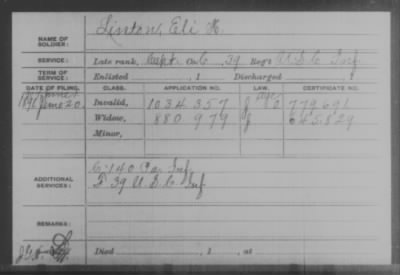 NAME OF SOLDIER: Linton, Eli H
SERVICE: Late rank, Capt. Co. C, 39 Reg't U.S.C. Inf.
TERM OF SERVICE: Enlisted , 1 Discharged , 1
DATE OF FILING. CLASS. APPLICATION NO. LAW. CERTIFICATE NO.
Invalid, 1034357 779691
Widow, 880979 645829
Minor,
ADDITIONAL SERVICES: C. 140 Pa. Inf.
F 39 U.S.C. Inf
REMARKS:
Died , 1 , at